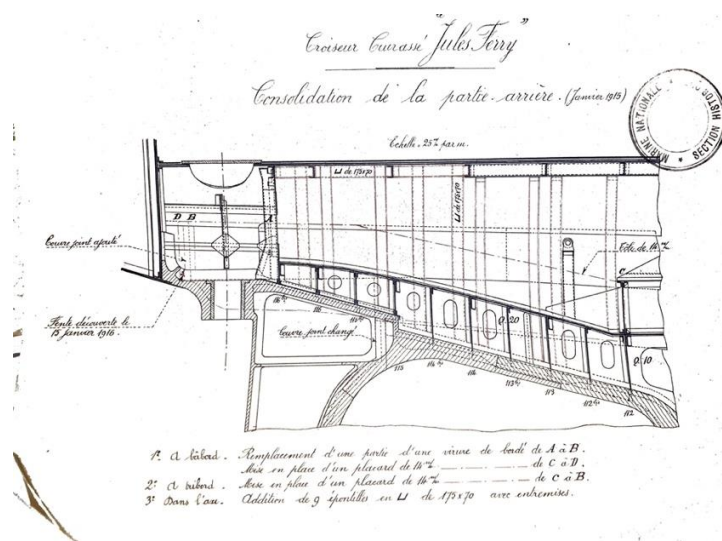 Croiseur Cuirassé "Jules Ferry"
Consolidation de la partie arrière. (Janvier 1915)
MARINE NATIONALE * SECTION HIST
Echelle. 25 % par m.
⊔ de 175x70
⊔ de 175x70
D B
A
Couvre joint ajouté
Tôle de 14 %
C
Fente découverte le
15 janvier 1916
116 ½
116
115 ½
Couvre joint changé
Q. 20
Q. 10
115
114 ½
114
113 ½
113
112 ½
112
1º A bâbord. Remplacement d'une partie d'une virure de bordé de A à B.
Mise en place d'un placard de 14 % de C à D.
2º A tribord. Mise en place d'un placard de 14 % de C à B.
3º Dans l'axe. Addition de 9 épontilles en ⊔ de 175x70 avec entremises.